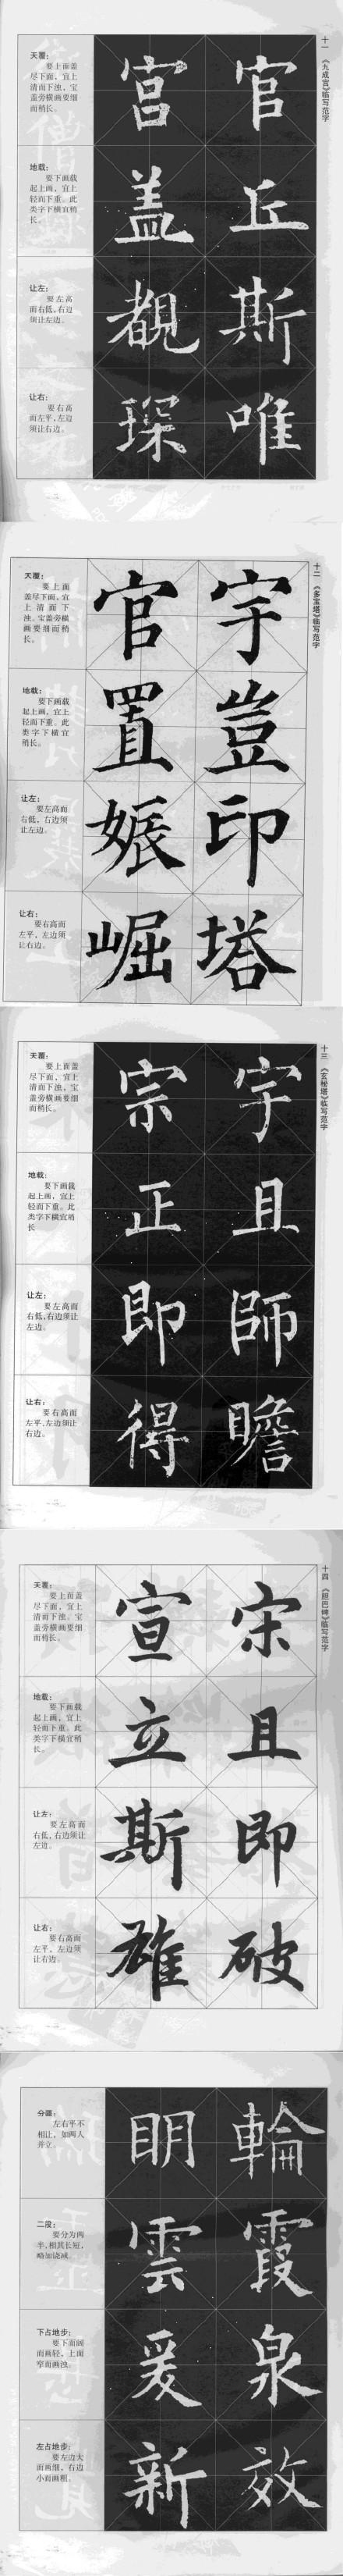 十一 《九成宫》临写范字
天覆：
要上面盖
尽下面，宜上
清而下浊，宝
盖旁横画要细
而稍长。
宫 官
地载：
要下画载
起上画，宜上
轻而下重。此
类字下横宜稍
长。
盖 丘
让左：
要左高
而右低，右边
须让左边。
都 斯
让右：
要右高
而左平，左边
须让右边。
琛 唯
十二 《多宝塔》临写范字
天覆：
要上面
盖尽下面，宜
上清而下
浊。宝盖旁横
画要细而稍
长。
官 宇
地载：
要下画载
起上画，宜上
轻而下重。此
类字下横宜
稍长。
置 岂
让左：
要左高而
右低，右边须
让左边。
娠 印
让右：
要右高而
左平，左边须
让右边。
崛 塔
十三 《玄秘塔》临写范字
天覆：
要上面盖
尽下面，宜上
清而下浊，宝
盖旁横画要细
而稍长。
宗 宇
地载：
要下画载
起上画，宜上
轻而下重。此
类字下横宜稍
长
正 且
让左：
要左高而
右低，右边须让
左边。
即 師
让右：
要右高而
左平，左边须让
右边。
得 瞻
十四 《胆巴碑》临写范字
天覆：
要上面盖
尽下面，宜上
清而下浊。宝
盖旁横画要细
而稍长。
宣 宋
地载：
要下画载
起上画，宜上
轻而下重。此
类字下横宜稍
长。
立 且
让左：
要左高而
右低，右边须让
左边。
斯 即
让右：
要右高而
左平，左边须
让右边。
雄 破
分疆：
左右平不
相让，如两人
并立。
明 輪
二段：
要分为两
半，相其长短，
略加饶减。
雲 霞
下占地步：
要下面阔
而画轻，上面
窄而画浊。
爰 泉
左占地步：
要左边大
而画细，右边
小而画粗。
新 效